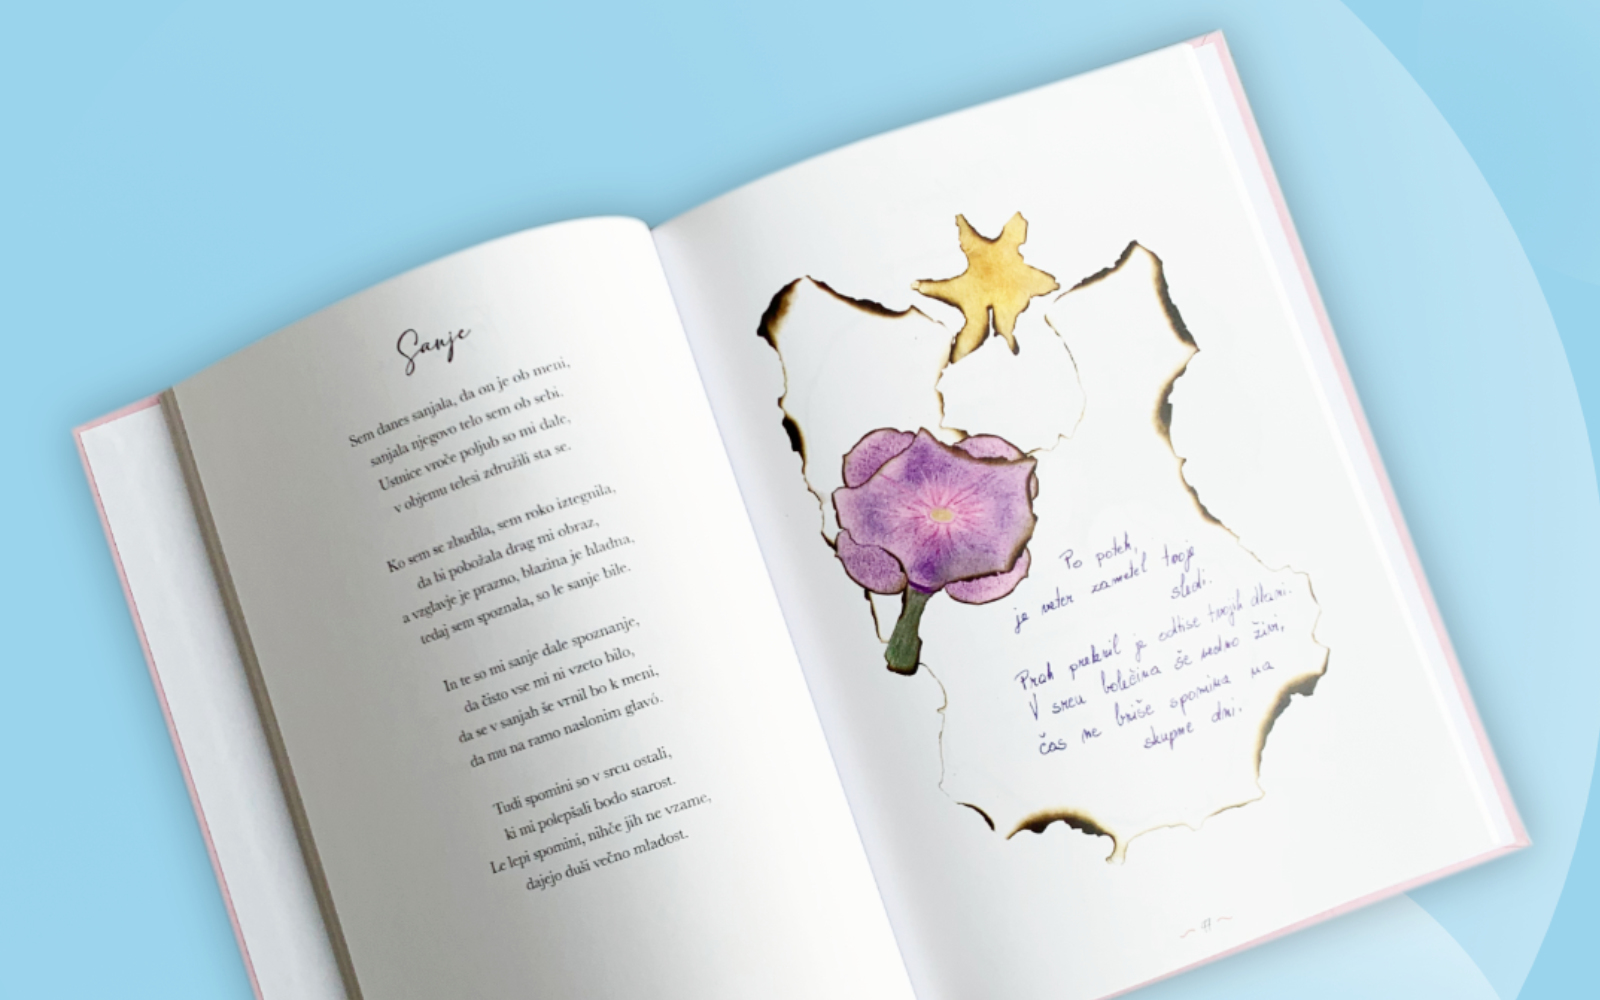 Sanje
Sem danes sanjala, da on je ob meni,
sanjala njegovo telo sem ob sebi.
Ustnice vroče poljub so mi dale,
v objemu telesi združili sta se.
Ko sem se zbudila, sem roko iztegnila,
da bi pobožala drag mi obraz,
a vzglavje je prazno, blazina je hladna,
tedaj sem spoznala, so le sanje bile.
In te so mi sanje dale spoznanje,
da čisto vse mi ni vzeto bilo,
da se v sanjah še vrnil bo k meni,
da mu na ramo naslonim glavó.
Tudi spomini so v srcu ostali,
ki mi polepšali bodo starost.
Le lepi spomini, nihče jih ne vzame,
dajejo duši večno mladost.
Po poteh,
je veter zametel tvoje
sledi.
Prah prekril je odtise tvojih dlani.
V srcu bolečina še vedno živi,
čas ne briše spomina na
skupne dni.